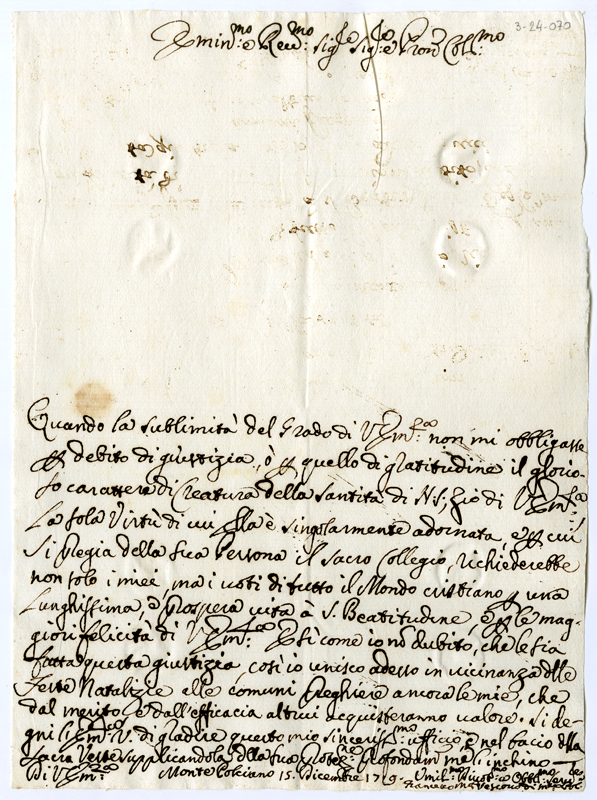 3-24-070
Emin:mo e Rev:mo Sig:re Sig:re e Pron Coll:mo
Quando la sublimità del Grado di V. Em:za non mi obbligasse
p debito di giustizia, ò p quello di gratitudine il glorio-
so carattere di Creatura della Santità di N.S. Zio di V. Em:za
La sola Virtù di cui Ella è singolarmente adornata, e p cui
si pregia della sua Persona il sacro Collegio, richiederebbe
non solo i miei, ma i voti di tutto il Mondo cristiano p una
Lunghissima, e Prospera vita à S. Beatitudine, e p le mag-
giori felicità di V. Em:za E sì come io nò dubito, che le sia
fatta questa giustizia, così io unisco adesso in vicinanza delle
Feste Natalizie alle comuni Preghiere ancora le mie, che
dal merito, e dall'efficacia altrui acquisteranno valore. Si de-
gni l'Em:za V. di gradire questo mio sinceriss:mo uffizio, e nel bacio della
Sacra Veste supplicandola della sua Protez:ne profondam:te m'inchino
Di V. Em:za Monte Pulciano 15. Dicembre 1719. Umil:mo Divot:mo Obbl:mo
Francesco M:a Vescovo di